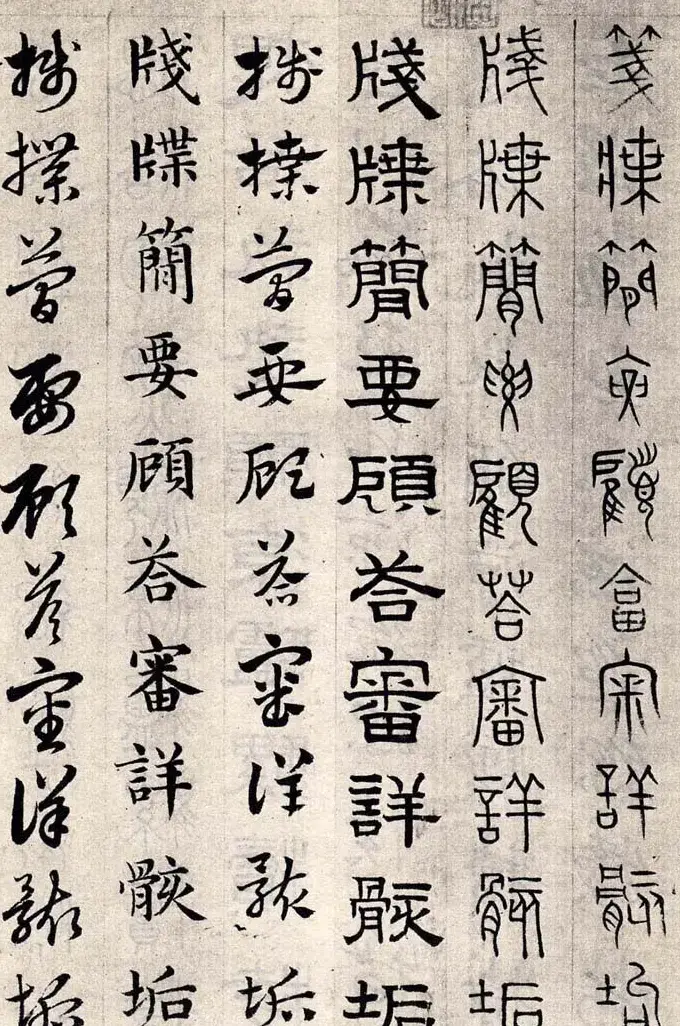 箋牒簡要顧畣宷詳骸垢
牋牒簡要顧荅審詳骸垢
牋牒簡要顧荅審詳骸垢
牋牒簡要顧荅審詳骸垢
牋牒簡要顧荅審詳骸垢
牋牒簡要顧荅審詳骸垢